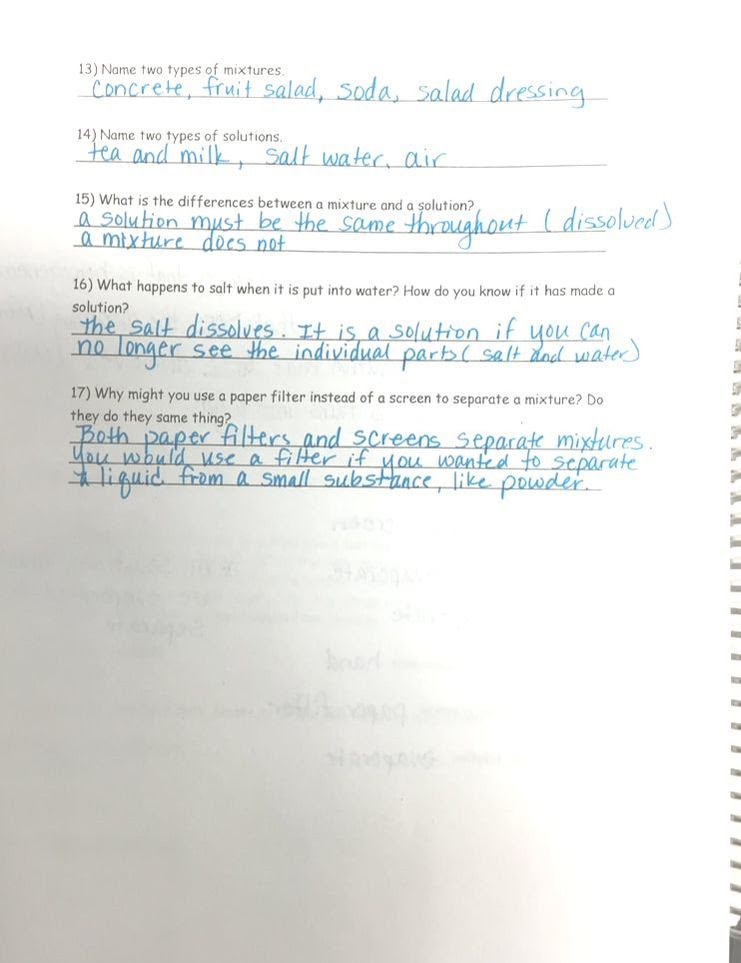 13) Name two types of mixtures.
Concrete, fruit salad, soda, salad dressing
14) Name two types of solutions.
tea and milk, salt water, air
15) What is the differences between a mixture and a solution?
a solution must be the same throughout (dissolved)
a mixture does not
16) What happens to salt when it is put into water? How do you know if it has made a
solution?
the salt dissolves. It is a solution if you can
no longer see the individual parts ( salt and water)
17) Why might you use a paper filter instead of a screen to separate a mixture? Do
they do they same thing?
Both paper filters and screens separate mixtures.
You would use a filter if you wanted to separate
a liquid from a small substance, like powder.